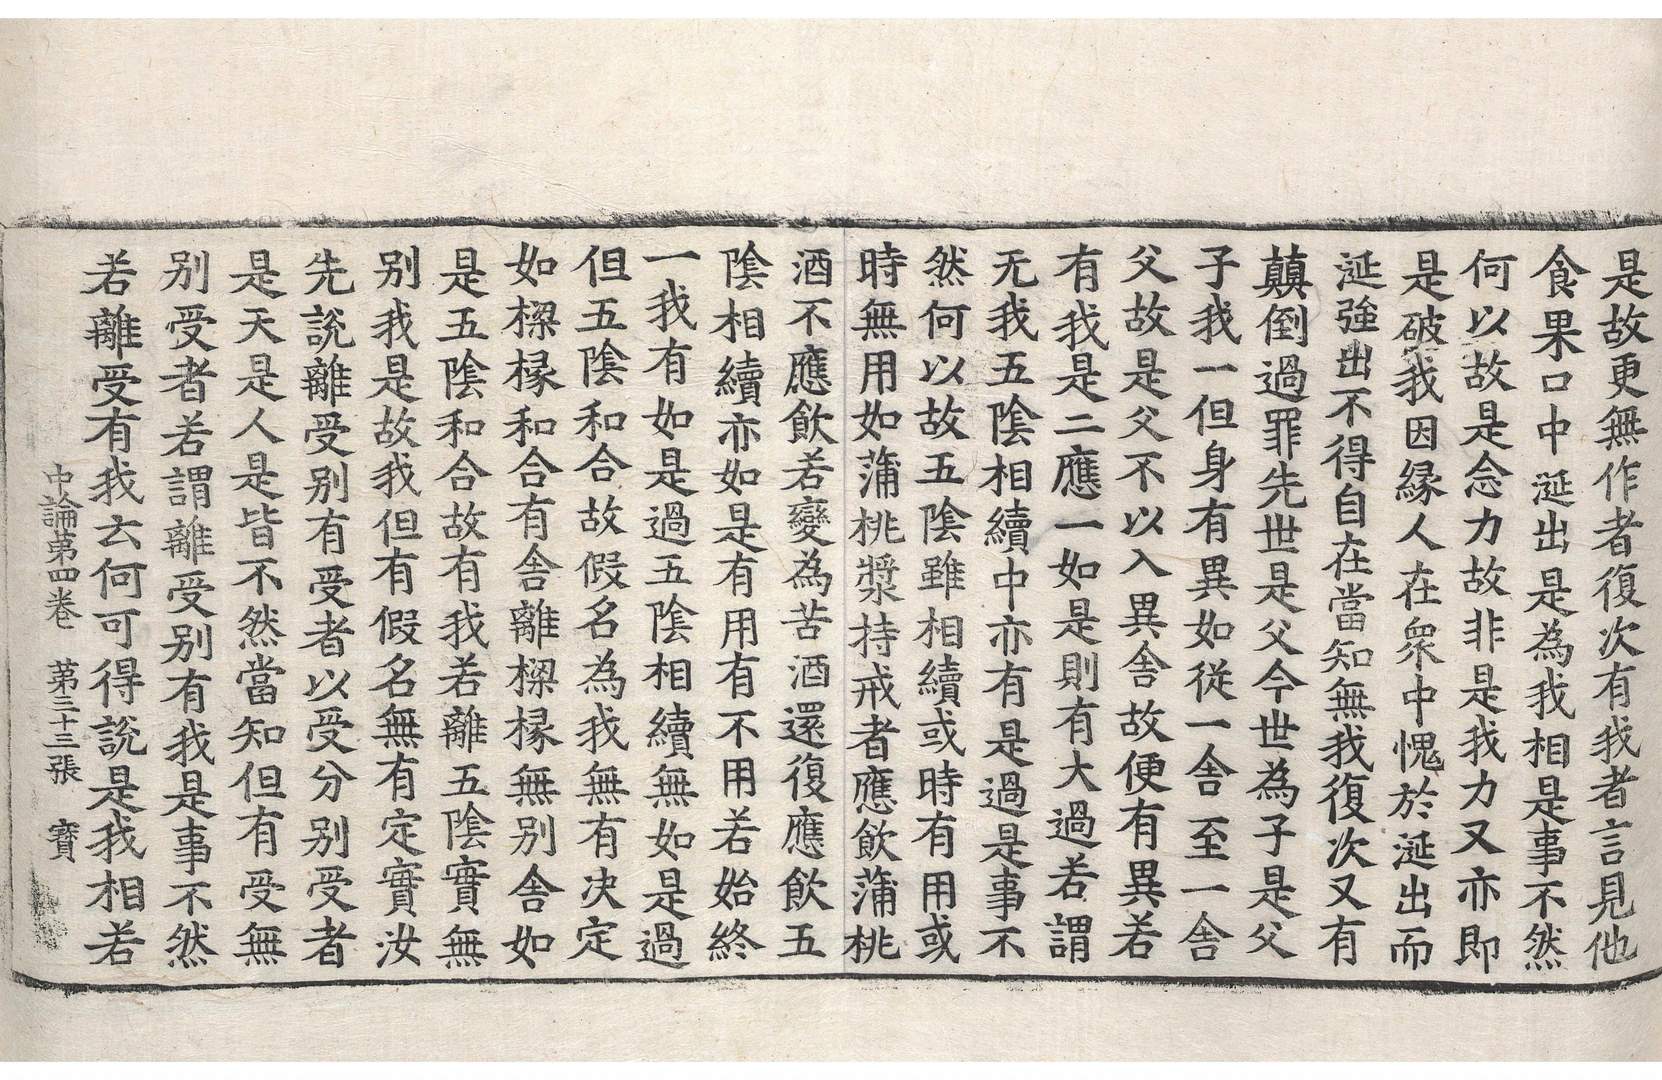 是故更無作者復次有我者言見他
食果口中涎出是為我相是事不然
何以故是念力故非是我力又亦即
是破我因縁人在衆中愧於涎出而
涎強出不得自在當知無我復次又有
顛倒過罪先世是父今世為子是父
子我一但身有異如從一舎至一舎
父故是父不以入異舎故便有異若
有我是二應一如是則有大過若謂
无我五陰相續中亦有是過是事不
然何以故五陰雖相續或時有用或
時無用如蒲桃漿持戒者應飲蒲桃
酒不應飲若變為苦酒還復應飲五
陰相續亦如是有用有不用若始終
一我有如是過五陰相續無如是過
但五陰和合故假名為我無有决定
如樑椽和合有舎離樑椽無別舎如
是五陰和合故有我若離五陰實無
別我是故我但有假名無有定實汝
先説離受別有受者以受分別受者
是天是人是皆不然當知但有受無
別受者若謂離受別有我是事不然
若離受有我云何可得説是我相若
中論第四卷　第三十三張　寳